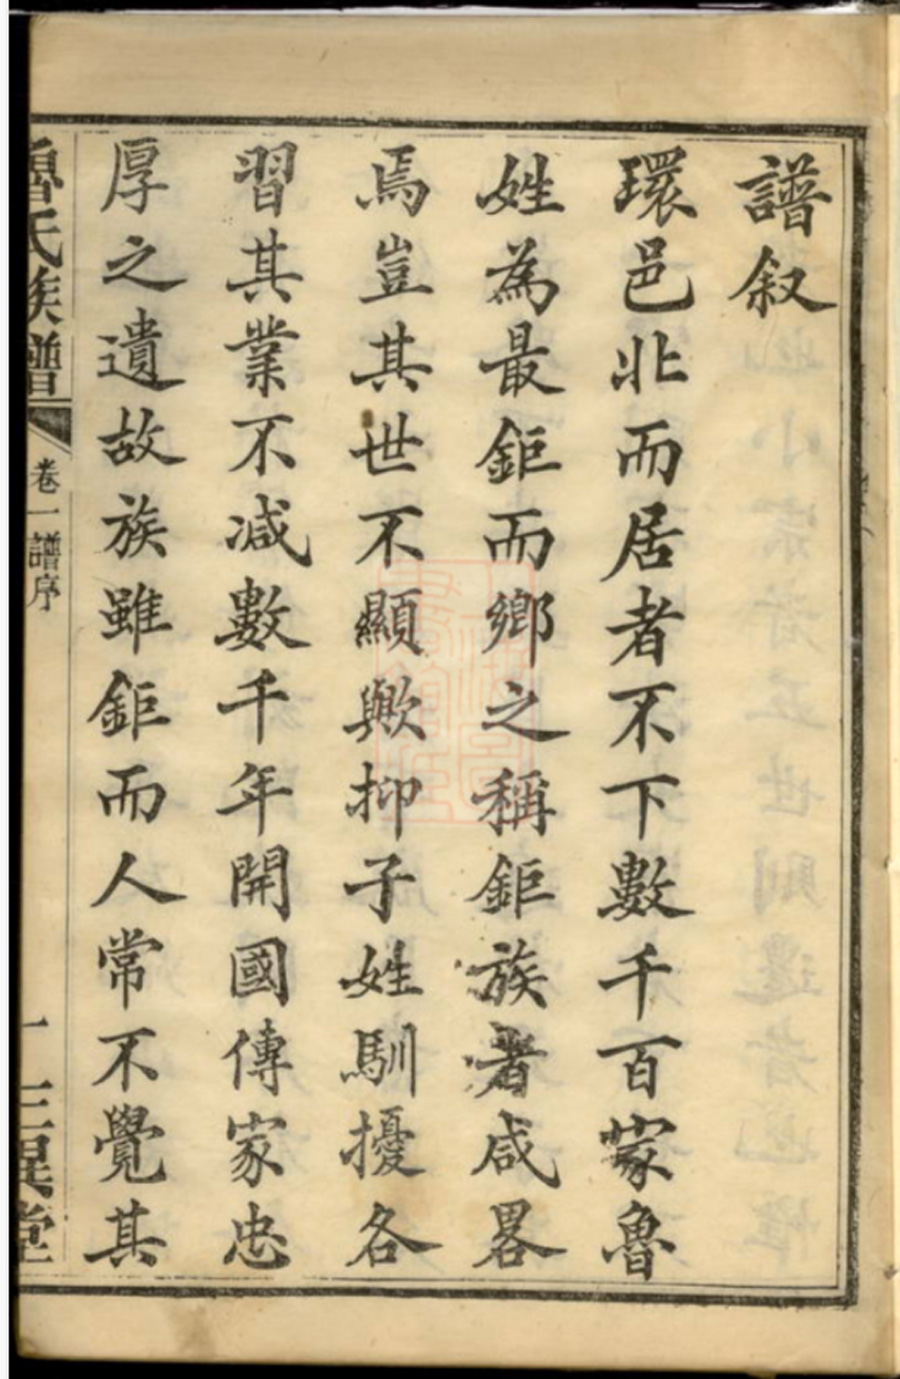 譜叙
環邑北而居者不下數千百家魯
姓為最鉅而鄉之稱鉅族者咸畧
焉豈其世不顯歟抑子姓馴擾各
習其業不減數千年開國傳家忠
厚之遺故族雖鉅而人常不覺其
魯氏族譜
卷一譜序
一
三異堂